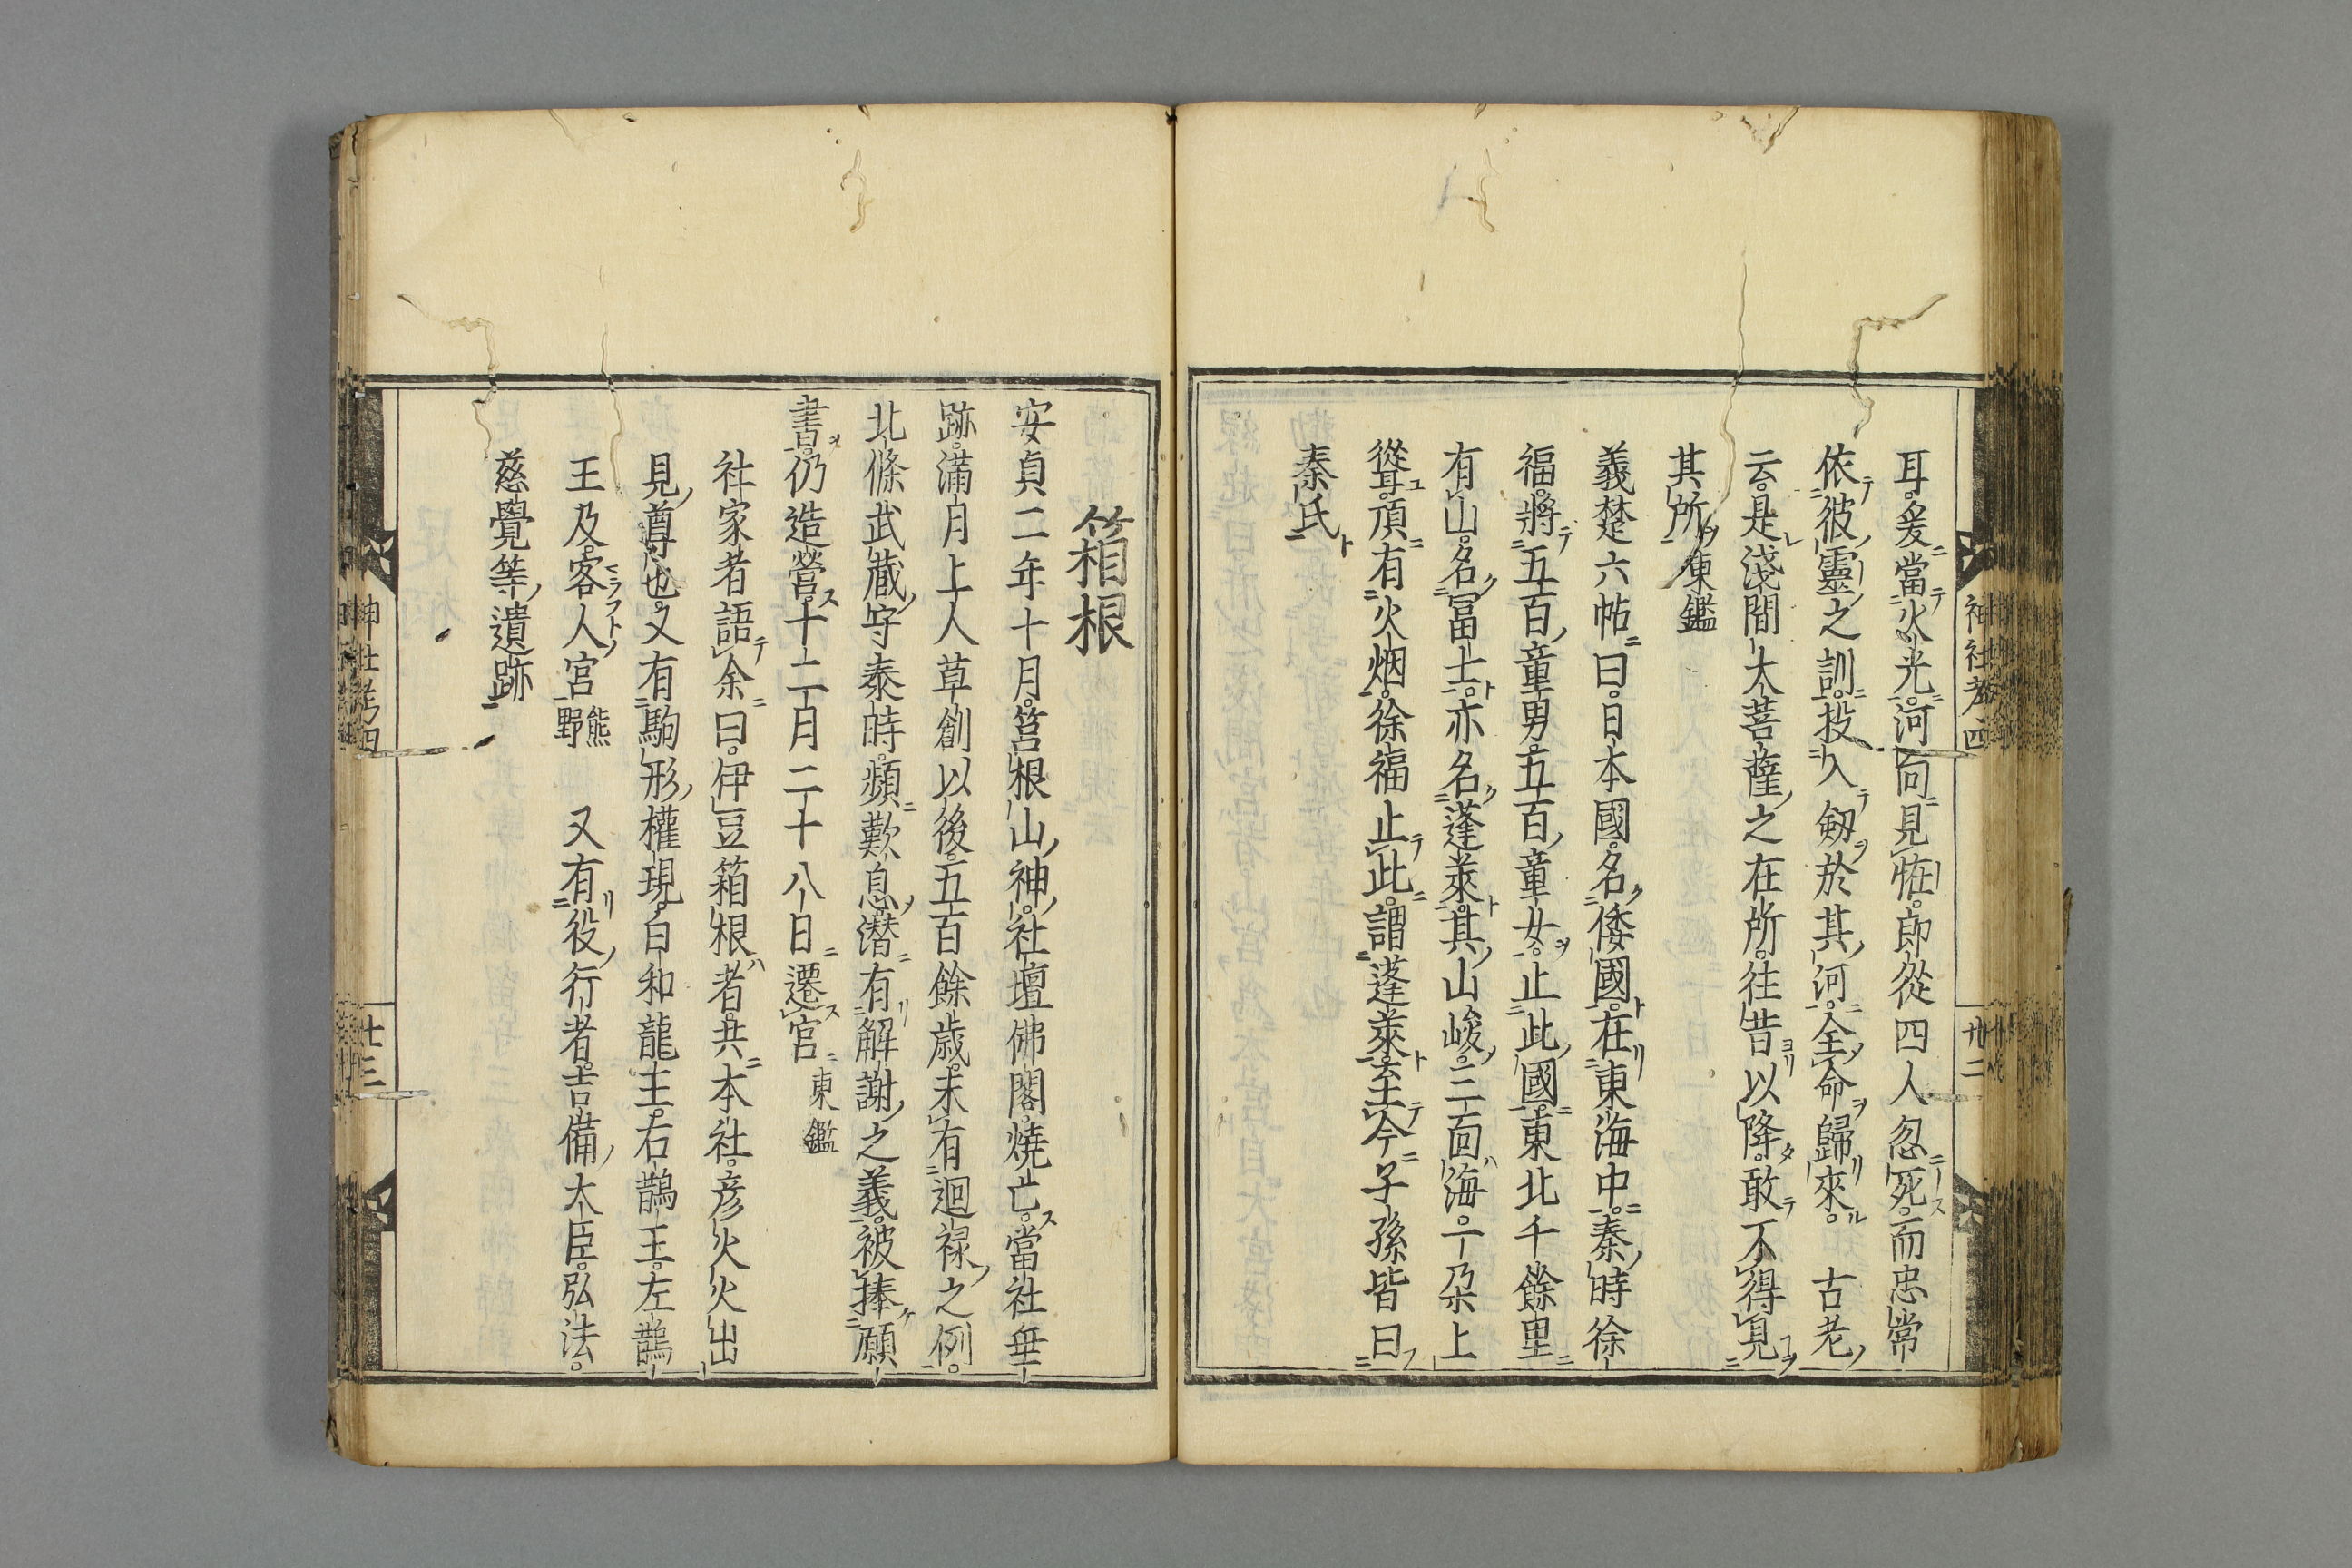 耳。爰當火光。河向見恠。卽從四人忽死。而忠常
依彼靈之訓。投入劔於其河。全命歸來。 古老
云。是淺間大菩薩之在所。往昔以降。敢不得見
其所 東鑑
義楚六帖曰。日本國。名倭國。在東海中。秦時徐
福。將五百童男。五百童女。止此國。東北千餘里
有山。名冨士。亦名蓬萊。其山峻。三面海。一朶上
聳。頂有火烟。徐福止此。謂蓬萊。至今子孫皆曰
秦氏
神社考四
廿二
箱根
安貞二年十月。筥根山神。社壇佛閣。燒亡。當社無
跡。滿月上人草創以後。五百餘歳。未有迴禄之例。
北條武藏守泰時。頻歎息。潜有解謝之義。被捧願
書。仍造營。十二月二十八日遷宮 東鑑
社家者語余曰。伊豆箱根者。共本社。彦火火出
見尊也。又有駒形權現。白和龍王。右鵲王。左鵲
王及客人宮 熊野 又有役行者。吉備大臣。弘法。
慈覺等遺跡
神社考四
廿三